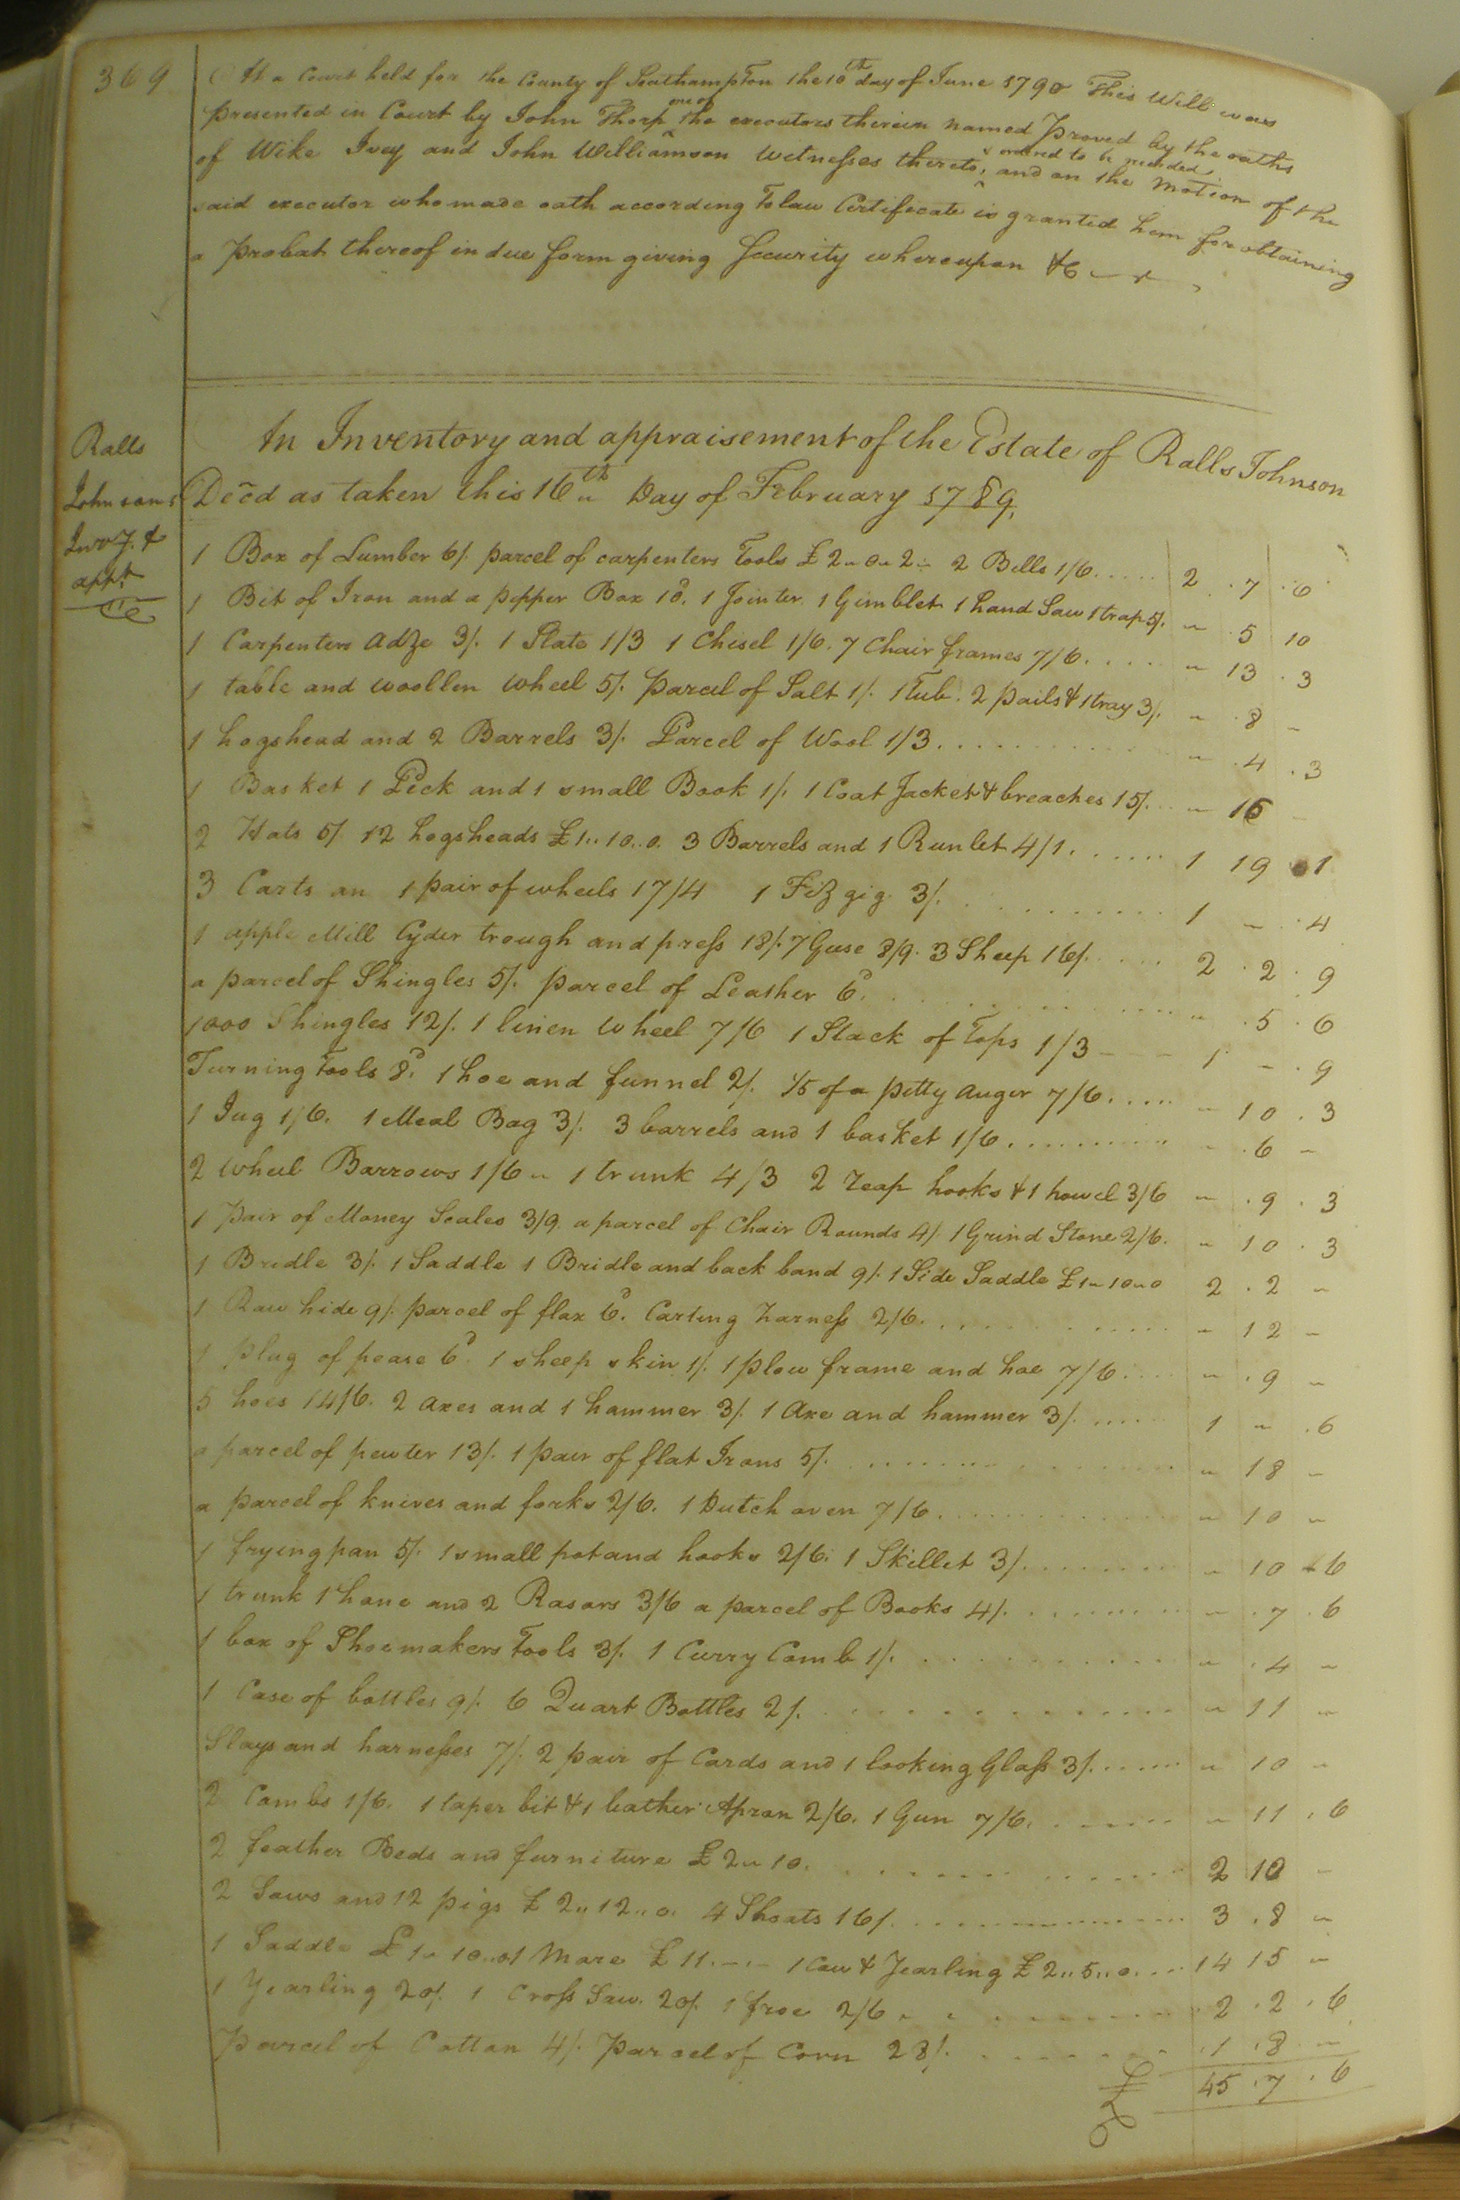 369
At a Court held for the County of Southampton the 10th day of June 1790 This Will was
presented in Court by John Thorp one of the executors therein named proved by the oaths
of Wike Ivey and John Williamson Witnesses thereto, & ordered to be recorded, and on the Motion of the
said executor who made oath according to law Certificate is granted him for obtaining
a probat thereof in due form giving Security whereupon &C
Ralls
Johnsons
Invy. &
appt.
An Inventory and appraisement of the Estate of Ralls Johnson
Decd as taken this 16th Day of February 1789.
1 Box of Lumber 6/. parcel of carpenters Tools £2 " 0 " 2 - 2 Bells 1/6 . . . . . 2 . 7 . 6
1 Bit of Iron and a pepper Box 10d. 1 Jointer 1 Gimblet 1 hand Saw 1 trap 5/. " 5 10
1 Carpenters adze 3/. 1 Slate 1/3 1 Chisel 1/6. 7 Chair frames 7/6 . . . . . " 13 . 3
1 table and woollen wheel 5/. parcel of Salt 1/. 1 Tub. 2 pails & 1 tray 3/. " . 8 "
1 hogshead and 2 Barrels 3/. Parcel of Wool 1/3 . . . . . " . 4 . 3
1 Basket 1 Peck and 1 small Book 1/. 1 Coat Jacket & breaches 15/. . " 16 "
2 Hats 5/. 12 hogsheads £1 " 10 " 0. 3 Barrels and 1 Runlet 4/1 . . . . . 1 19 1
3 Carts an 1 pair of wheels 17/4 1 Fizgig 3/. . . . . . 1 " . 4
1 apple Mill Cyder trough and press 18/. 7 Geese 8/9. 3 Sheep 16/. . . . . 2 . 2 . 9
a parcel of Shingles 5/. parcel of Leather 6d. . . . . . " . 5 . 6
1000 Shingles 12/. 1 linen wheel 7/6 1 Stack of Tops 1/3 - - - 1 - . 9
Turning Tools 8d. 1 hoe and funnel 2/. 1/5 of a petty auger 7/6 . . . . . " 10 . 3
1 Jug 1/6. 1 Meal Bag 3/. 3 barrels and 1 basket 1/6 . . . . . " . 6 "
2 wheel Barrows 1/6 " 1 trunk 4/3 2 reap hooks & 1 howel 3/6 " . 9 . 3
1 pair of Money Scales 3/9. a parcel of Chair Rounds 4/. 1 Grind Stone 2/6. " 10 . 3
1 Bridle 3/. 1 Saddle 1 Bridle and back band 9/. 1 Side Saddle £1 " 10 " 0 2 . 2 "
1 Raw hide 9/. parcel of flax 6d. Carting harness 2/6. . . . . . " 12 "
1 plug of pease 6d. 1 sheep skin 1/. 1 plow frame and hoe 7/6 . . . . " . 9 "
5 hoes 14/6. 2 axes and 1 hammer 3/. 1 Axe and hammer 3/. . . . . 1 " . 6
a parcel of pewter 13/. 1 pair of flat Irons 5/. . . . . . " 18 "
a parcel of knives and forks 2/6. 1 Dutch oven 7/6 . . . . . " 10 "
1 frying pan 5/. 1 small pot and hooks 2/6. 1 Skillet 3/. . . . . . " 10 6
1 trunk 1 hone and 2 Rasors 3/6 a parcel of Books 4/. . . . . . " . 7 . 6
1 box of Shoemakers Tools 3/. 1 Curry Comb 1/. . . . . . " . 4 "
1 Case of bottles 9/. 6 Quart Bottles 2/. . . . . . " 11 "
Slays and harnesses 7/. 2 pair of Cards and 1 looking Glass 3/. . . . . . " 10 "
2 Combs 1/6. 1 taper bit & 1 leather Apron 2/6. 1 Gun 7/6. . . . . . " 11 . 6
2 feather Beds and furniture £2 " 10. . . . . . 2 10 "
2 Sows and 12 pigs £2 " 12 " 0. 4 Shoats 16/. . . . . . 3 . 8 "
1 Saddle £1 " 10 " 0 1 Mare £11. - . - 1 Cow & Yearling £2 " 5 " 0 . . . 14 15 "
1 Yearling 20/. 1 Cross Saw. 20/. 1 froe 2/6 . . . . . 2 . 2 . 6
Parcel of Cotton 4/. Parcel of Corn 28/. . . . . . . 1 . 8 "
£ 45 . 7 . 6